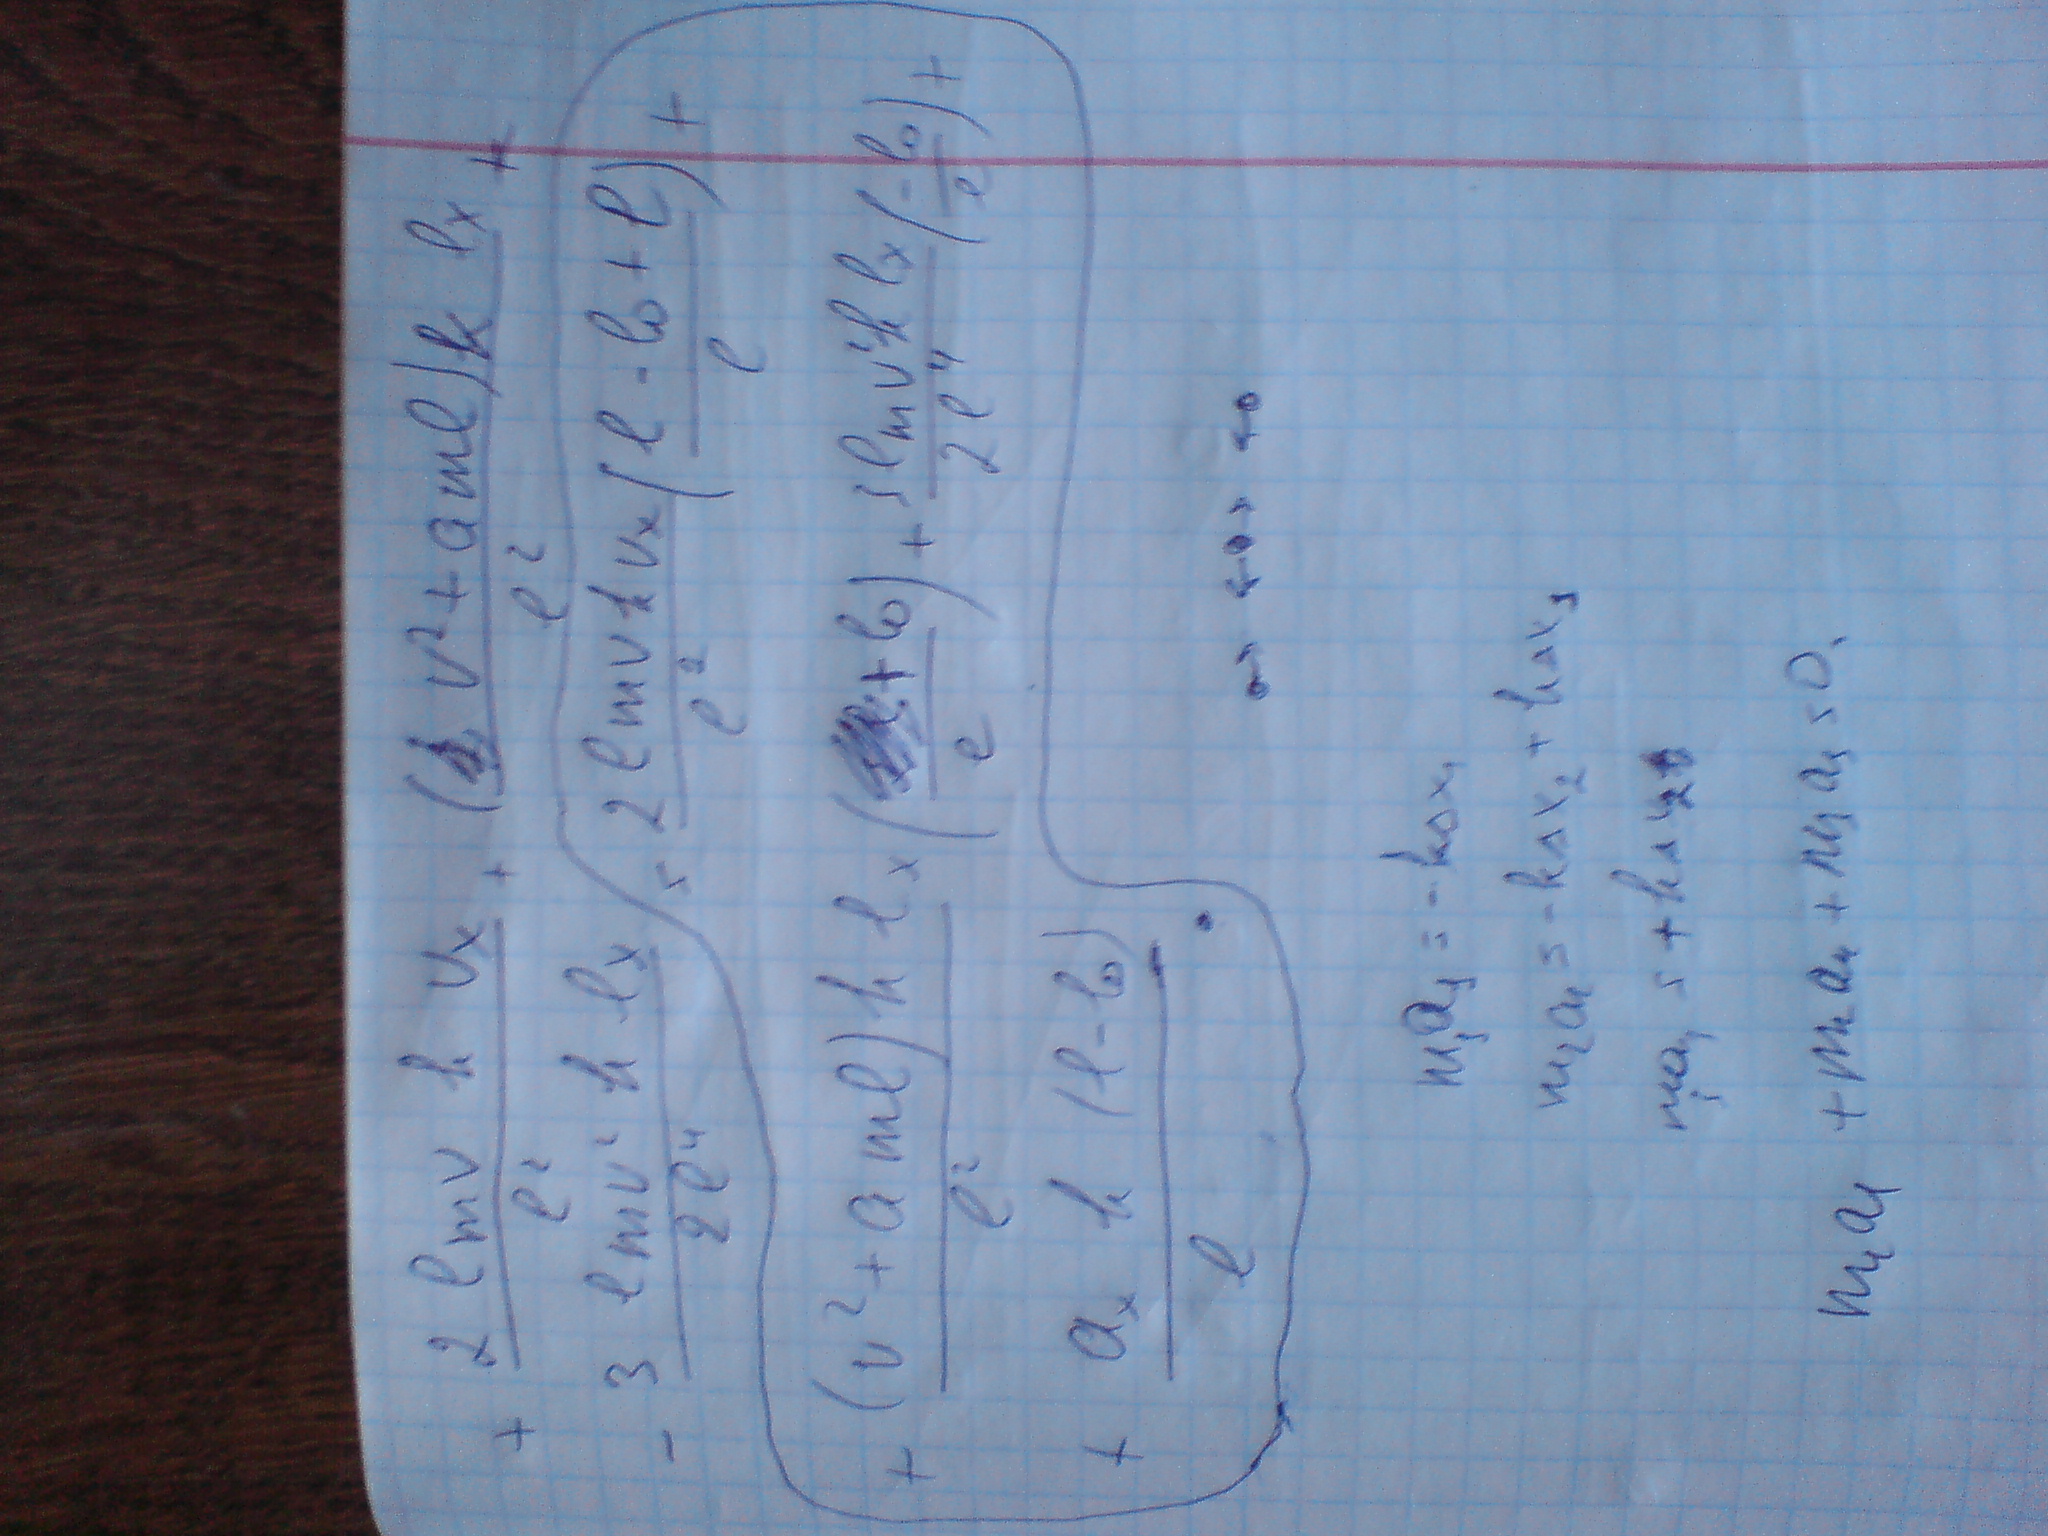 + 2 l m v k v_x / l^2 + ( v^2 + a m l) k l_x / l^2 +
- 3 l m v^2 k l_x / 2 l^4 = 2 l m v k v_x / l^2 ( l - l_0 + l / l ) +
+ (v^2 + a m l) k l_x / l^2 ( + l_0 / l ) + 3 l m v^2 k l_x / 2 l^4 ( - l_0 / l ) +
+ a_x k (l - l_0) / l .
m_1 a_1 = - k Δx_1
m_2 a_2 = - k Δx_2 + k Δx_1
m_3 a_3 = + k Δx_2
m_1 a_1 + m_2 a_2 + m_3 a_3 = 0.